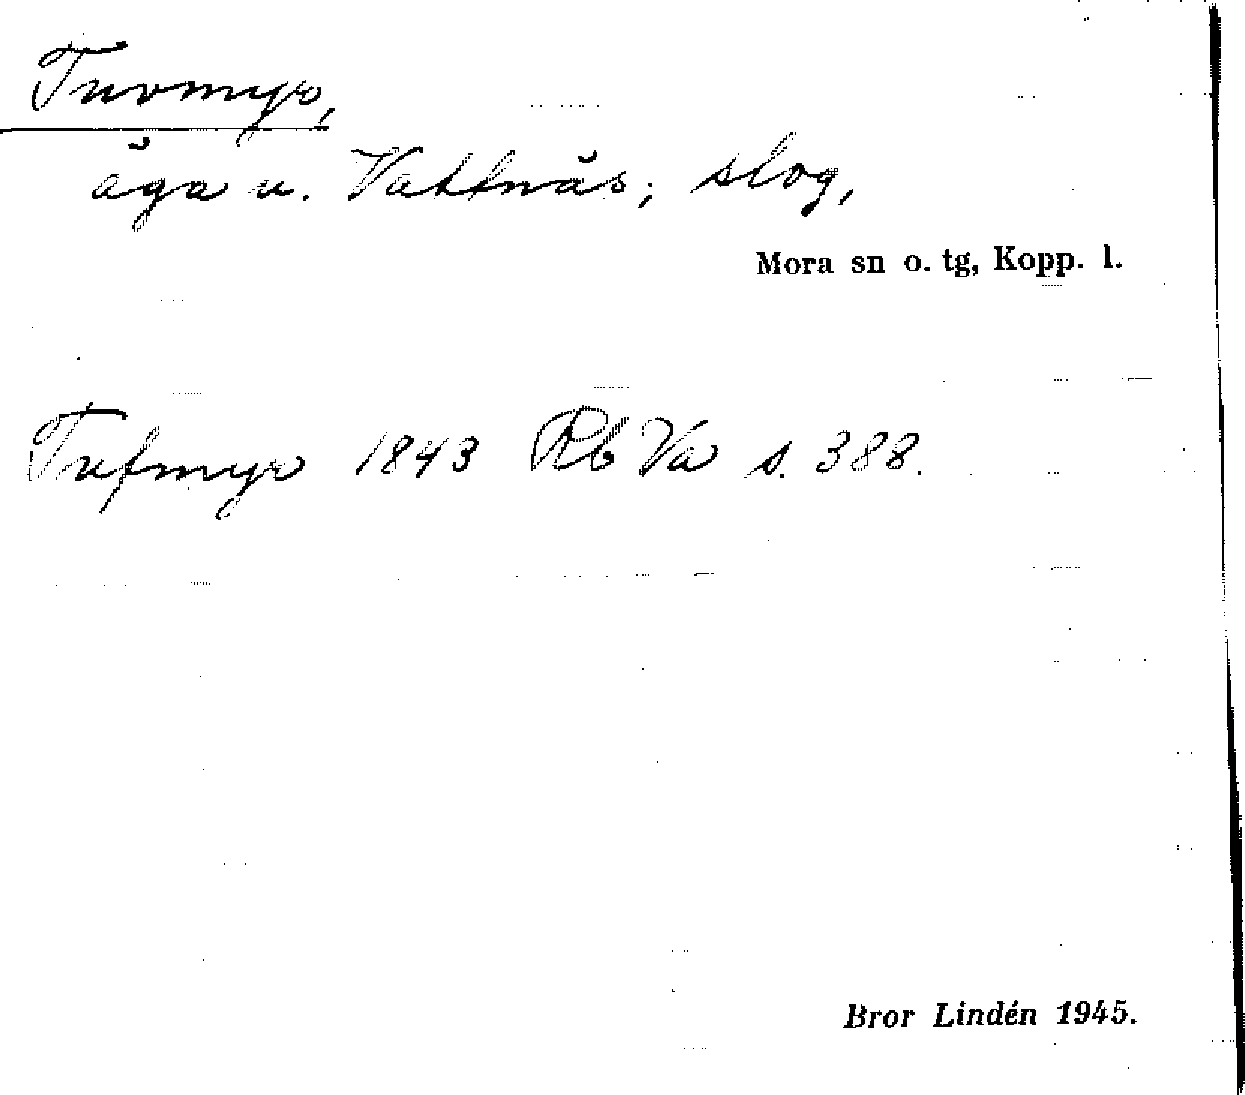 Tuvmyr,
äga u. Vattnäs; slog,
Mora sn o. tg, Kopp. l.
Tufmyr 1843 Rb Va s. 388.
Bror Lindén 1945.